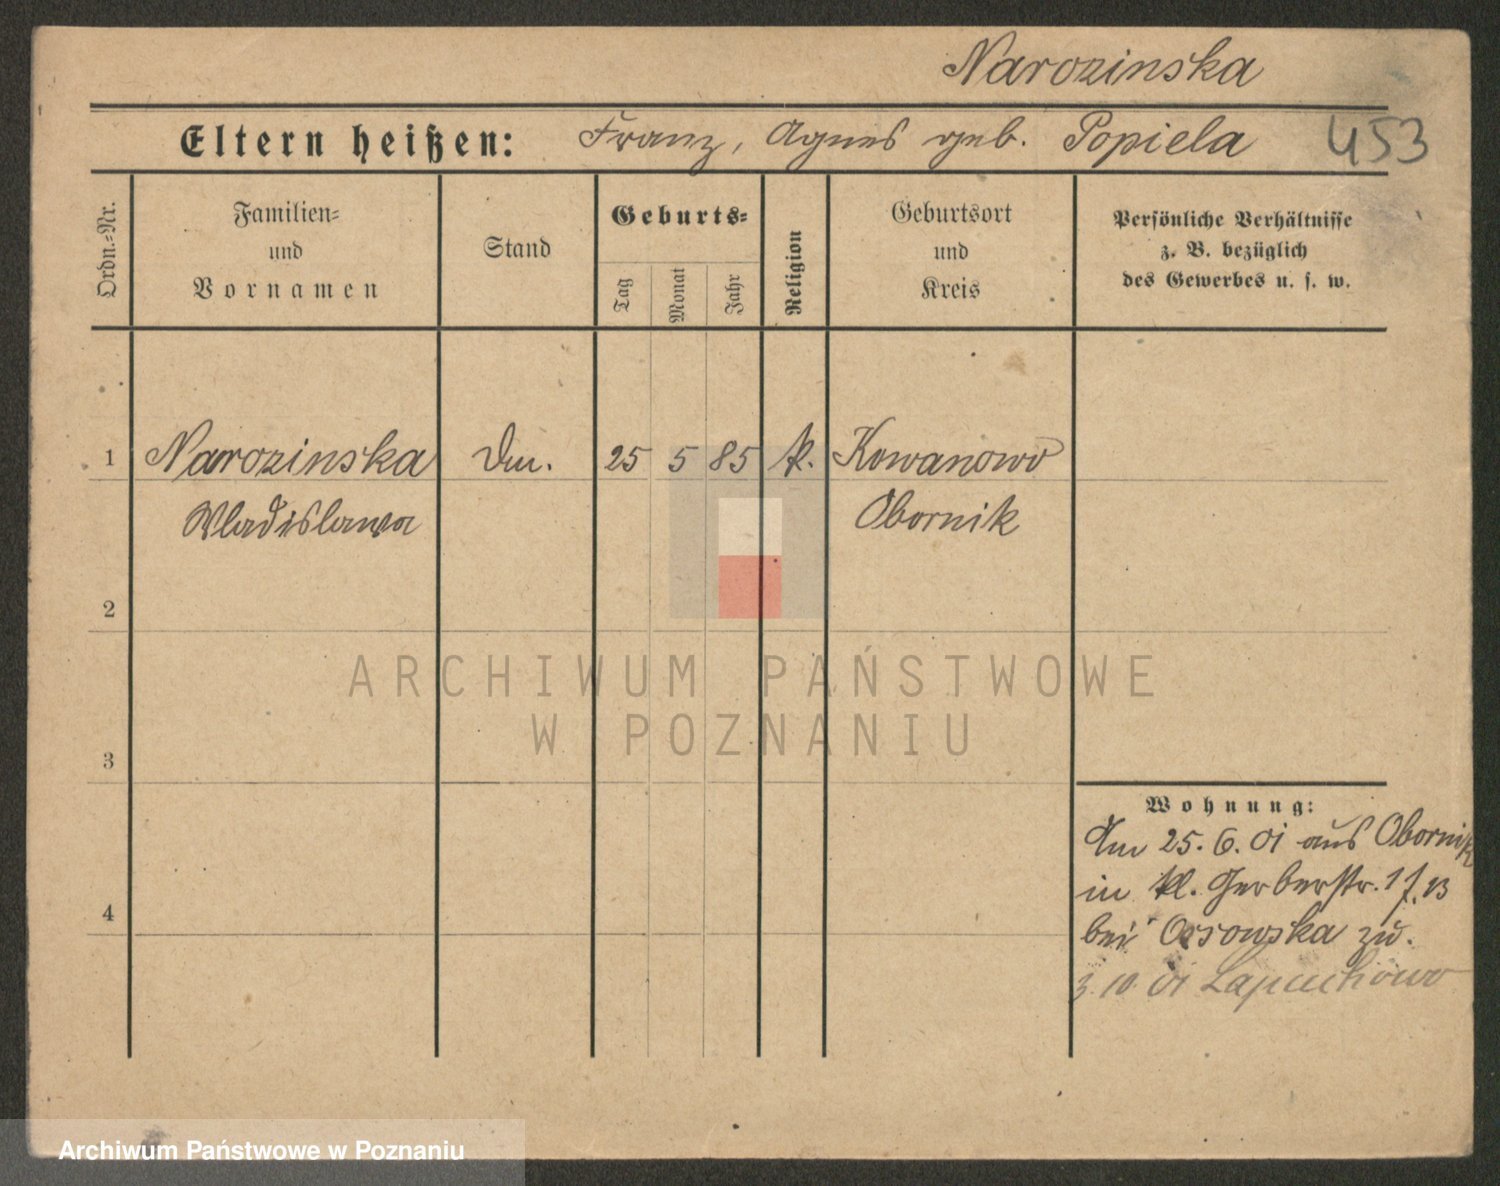 Narozinska
Eltern heißen: Franz, Agnes geb. Popiela 453
Ordn.=Nr.
Familien= und Vornamen
Stand
Geburts=
Tag
Monat
Jahr
Religion
Geburtsort und Kreis
Persönliche Verhältnisse
z. B. bezüglich
des Gewerbes u. s. w.
1 Narozinska 25 5 85 k. Kowanowo
Wladislawa Obornik
2
ARCHIWUM PAŃSTWOWE
W POZNANIU
3
4
Wohnung:
Am 25.6.01 aus Obornik
in kl. Gerberstr.
bei Ossowska zu.
3.10.01
Archiwum Państwowe w Poznaniu